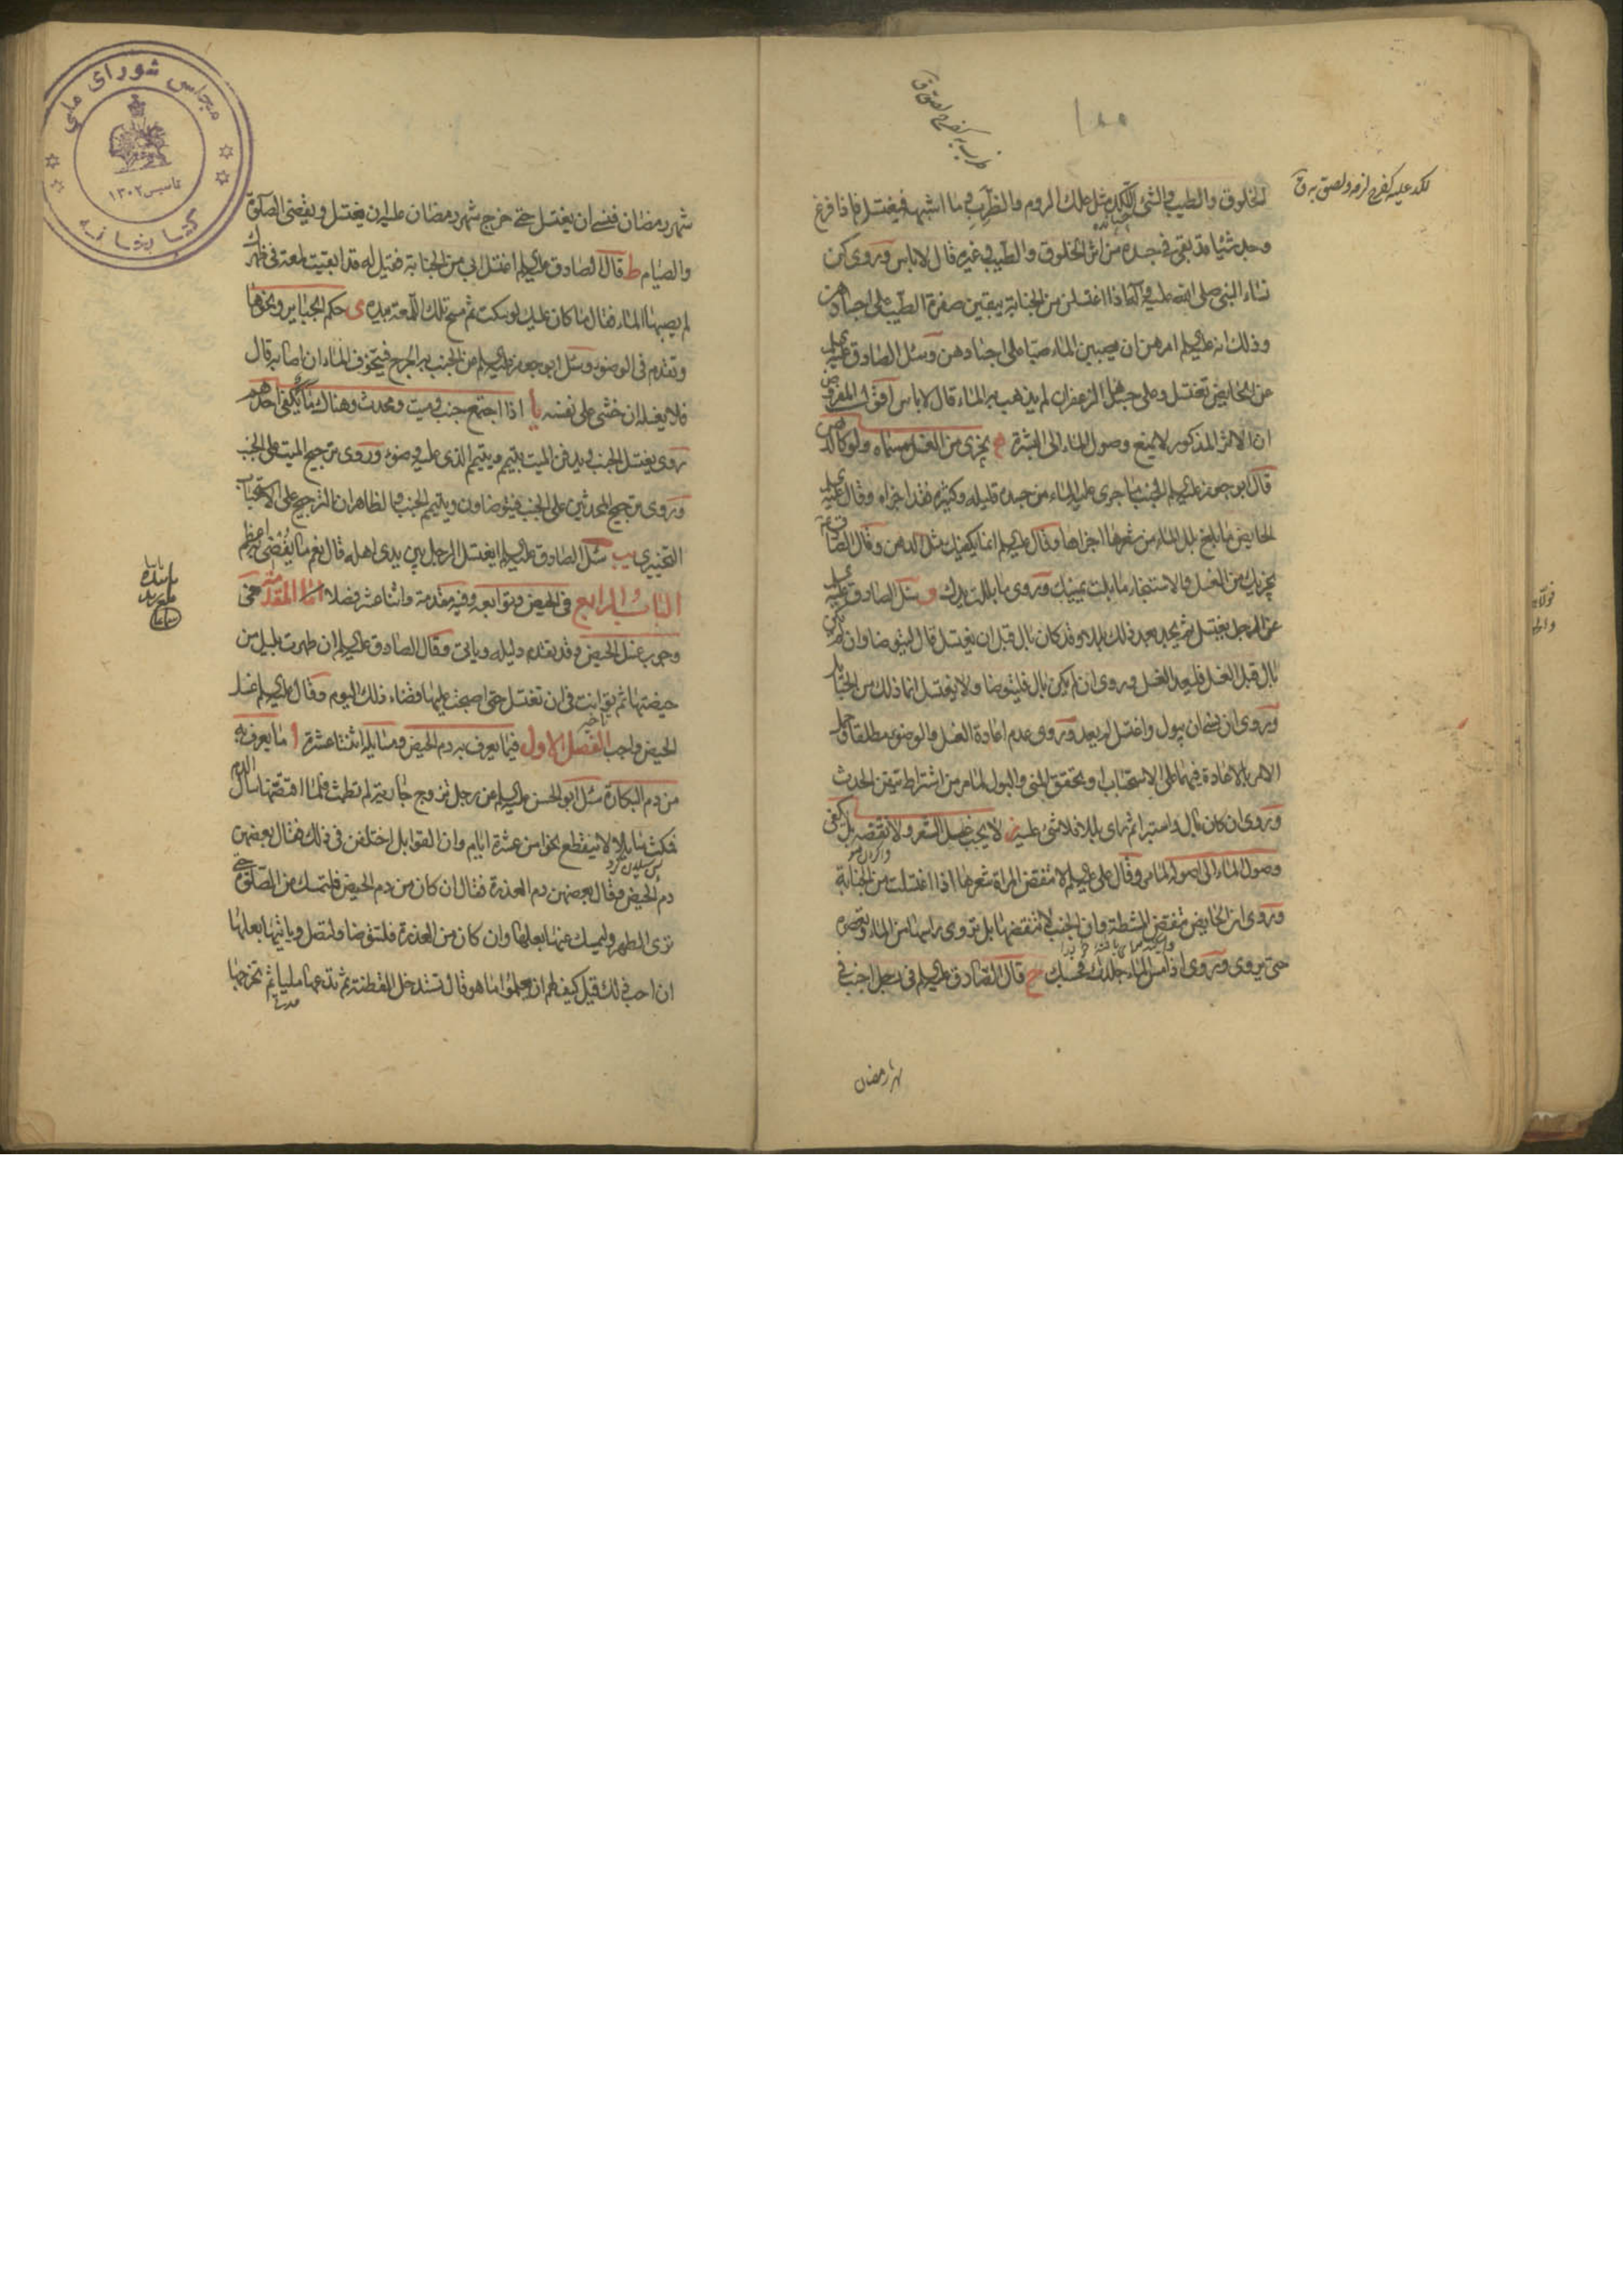 لكد عليه كفرح لزمه ولصق به ق
الخلوق والطيب والشئ اللكد مثل علك الروم والظرب وما اشبهه فيغتسل فاذا فرغ
وجد شيئا قد بقى فى جسده من اثر الخلوق والطيب وغيره قال لا باس وروى كن
نساء النبى صلى الله عليه وآله اذا اغتسلن من الجنابة يبقين صفرة الطيب على اجسادهن
وذلك انه عليه السلم امرهن ان يصببن الماء صبا على اجسادهن وسئل الصادق عليه السلم
عن الحايض تغتسل وعلى جسدها الزعفران لم يذهب به الماء قال لا باس اقول المفروض
ان الاثر المذكور لا يمنع وصول الماء الى البشرة ه يجزى من الغسل مسماه ولو كالدهن
قال ابو جعفر عليه السلم الجنب ما جرى عليه الماء من جسده قليله وكثيره فقد اجزاه وقال عليه السلم
الحايض ما بلغ بلل الماء من شعرها اجزاها وقال عليه السلم انما يكفيك مثل الدهن وقال الصادق
يجزيك من الغسل والاستنجاء ما بلت يمينك وروى ما بللت يدك و سئل الصادق عليه السلم
عن الرجل يغتسل ثم يجد بعد ذلك بللا وقد كان بال قبل ان يغتسل قال ليتوضا وان لم يكن
بال قبل الغسل فليعد الغسل وروى ان لم يكن بال فليتوضا ولا يغتسل انما ذلك من الحبائل
وروى ان نسى ان يبول واغتسل لم يعد وروى عدم اعادة الغسل والوضوء مطلقا وحمل
الامر بالاعادة فيهما على الاستحباب او تحقق المنى والبول لما مر من اشتراط تيقن الحدث
وروى ان كان بال واستبرا ثم راى بللا فلا شئ عليه ز لا يجب غسل الشعر ولا نقضه بل يكفى
وصول الماء الى اصوله لما مر وقال على عليه السلم لا تنقض المراة شعرها اذا اغتسلت من الجنابة
وروى ان الحايض تنقض المشطة وان الجنب لا تنقضها بل تروى راسها من الماء وتعصره
حتى يروى وروى اذا مس الماء جلدك فحسبك ح قال الصادق عليه السلم فى رجل اجنب فى
شهر رمضان
شهر رمضان فنسى ان يغتسل حتى خرج شهر رمضان عليه ان يغتسل ويقضى الصلوة
والصيام ط قال الصادق عليه السلم اغتسل ابى من الجنابة فقيل له قد ابقيت لمعة فى ظهرك
لم يصبها الماء فقال ما كان عليك لو سكت ثم مسح تلك اللمعة بيده ى حكم الجبائر ونحوها
وتقدم فى الوضوء وسئل ابو جعفر عليه السلم عن الجنب به الجرح فيتخوف الماء ان اصابه قال
فلا يغسله ان خشى على نفسه يا اذا اجتمع جنب وميت ومحدث وهناك ما يكفى احدهم
روى يغتسل الجنب ويدفن الميت بتيمم ويتيمم الذى عليه وضوء وروى ترجيح الميت على الجنب
وروى ترجيح المحدثين على الجنب فيتوضاون ويتيمم الجنب والظاهر ان الترجيح على الاستحباب
التخييرى يب سئل الصادق عليه السلم ايغتسل الرجل بين يدى اهله قال نعم ما يفضى به اعظم
الباب الرابع فى الحيض وتوابعه وفيه مقدمة واثنا عشر فصلا اما المقدمة ففى
وجوب غسل الحيض وقد تقدم دليله وياتى وقال الصادق عليه السلم ان طهرت بليل من
حيضتها ثم توانت فى ان تغتسل حتى اصبحت عليها قضاء ذلك اليوم وقال عليه السلم غسل
الحيض واجب الفصل الاول فيما يعرف به دم الحيض ومسايله اثنتا عشرة ا ما يعرف به
من دم البكارة سئل ابو الحسن عليه السلم عن رجل تزوج جارية لم تطمث فلما افتضها سال الدم
فمكث سايلا لا ينقطع نحوا من عشرة ايام وان القوابل اختلفن فى ذلك فقال بعضهن
دم الحيض وقال بعضهن دم العذرة فقال ان كان من دم الحيض فلتمسك عن الصلوة حتى
ترى الطهر وليمسك عنها بعلها وان كان من العذرة فلتتوضا ولتصل وياتيها بعلها
ان احب ذلك قيل كيف لهم ان يعلموا ما هو قال تستدخل القطنة ثم تدعها مليا ثم تخرجها
مجلس شورای ملی
تاسیس ۱۳۰۲
کتابخانه